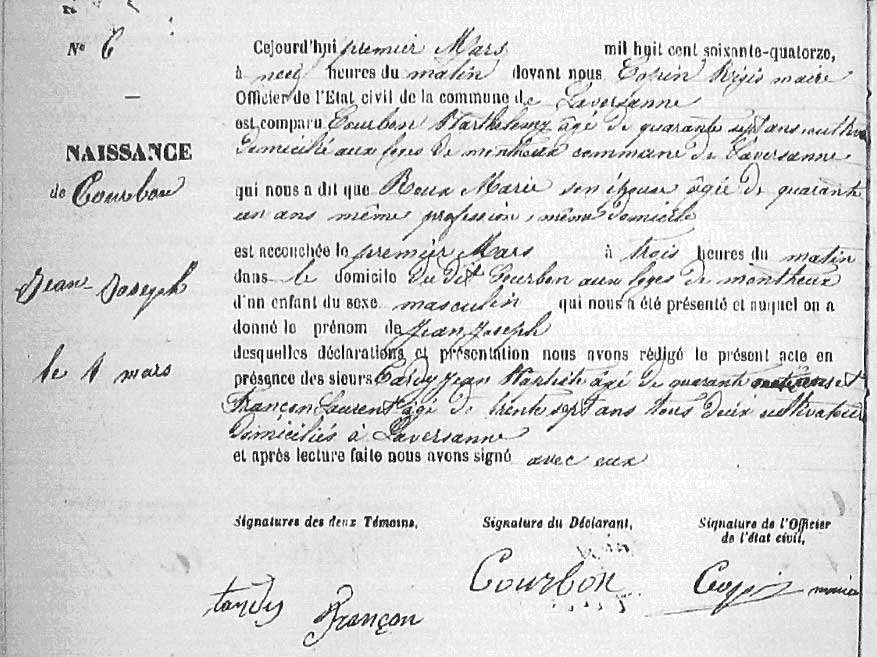 Nº 6
NAISSANCE
de Courbon
Jean Joseph
le 1 mars
Cejourd'hui premier Mars mil huit cent soixante-quatorze,
à neuf heures du matin devant nous Copin Régis maire
Officier de l'Etat civil de la commune de Laversanne
est comparu Courbon Barthelemy âgé de quarante sept ans
domicilié aux loges de montheux commune de Laversanne
qui nous a dit que Roux Marie son épouse âgée de quarante
un ans même profession, même domicile
est accouchée le premier Mars à trois heures du matin
dans le domicile du dit Courbon aux loges de montheux
d'un enfant du sexe masculin qui nous a été présenté et auquel on a
donné le prénom de Jean Joseph
desquelles déclarations et présentation nous avons rédigé le présent acte en
présence des sieurs Tardy Jean Baptiste âgé de quarante et
Françon Laurent âgé de trente sept ans tous deux cultivateurs
domiciliés à Laversanne
et après lecture faite nous avons signé avec eux
Signatures des deux Témoins, Signature du Déclarant, Signature de l'Officier
de l'état civil,
tardy Françon Courbon Copin maire